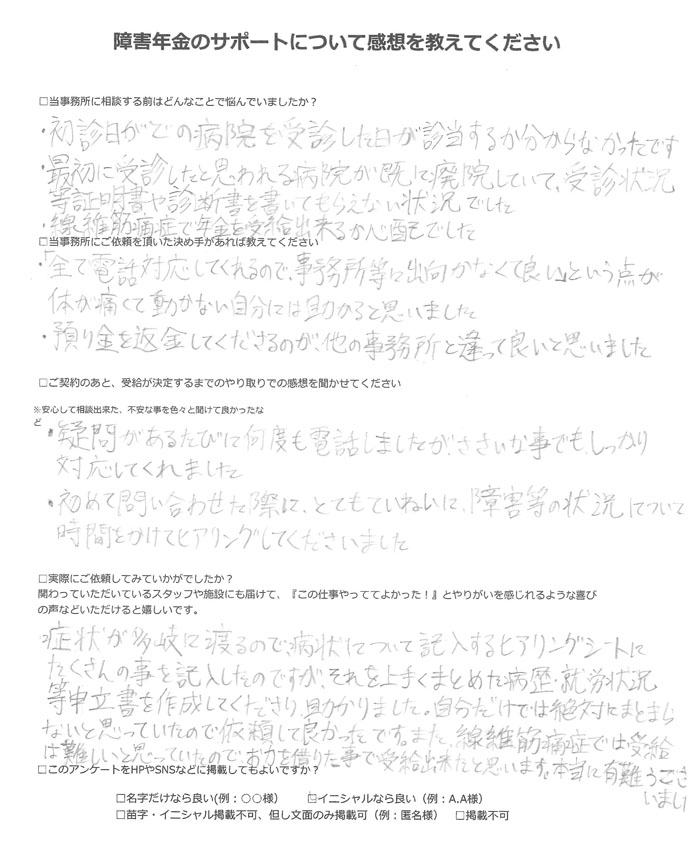 障害年金のサポートについて感想を教えてください
□当事務所に相談する前はどんなことで悩んでいましたか？
・初診日がどの病院を受診した日が該当するか分からなかったです
・最初に受診したと思われる病院が既に廃院していて、受診状況
等証明書や診断書を書いてもらえない状況でした
・線維筋痛症で年金を受給出来るか心配でした
□当事務所にご依頼を頂いた決め手があれば教えてください
・「全て電話対応してくれるので、事務所等に出向かなくて良い」という点が
体が痛くて動かない自分には助かると思いました
・預り金を返金してくださるのが、他の事務所と違って良いと思いました
□ご契約のあと、受給が決定するまでのやり取りでの感想を聞かせてください
※安心して相談出来た、不安な事を色々と聞けて良かったな
ど
・疑問があるたびに何度も電話しましたが、ささいな事でも、しっかり
対応してくれました
・初めて問い合わせた際に、とてもていねいに、障害等の状況について
時間をかけてヒアリングしてくださいました
□実際にご依頼してみていかがでしたか？
関わっていただいているスタッフや施設にも届けて、『この仕事やっててよかった！』とやりがいを感じれるような喜び
の声などいただけると嬉しいです。
・症状が多岐に渡るので、病状について記入するヒアリングシートに
たくさんの事を記入したのですが、それを上手くまとめた病歴・就労状況
等申立書を作成してくださり、助かりました。自分だけでは絶対にまとまら
ないと思っていたので依頼して良かったです。また、線維筋痛症では受給
は難しいと思っていたので、お力を借りた事で受給出来たと思います。本当に有難うござ
いました
□このアンケートをHPやSNSなどに掲載してもよいですか？
□名字だけなら良い(例：○○様） ☑イニシャルなら良い（例：A.A様）
□苗字・イニシャル掲載不可、但し文面のみ掲載可（例：匿名様） □掲載不可